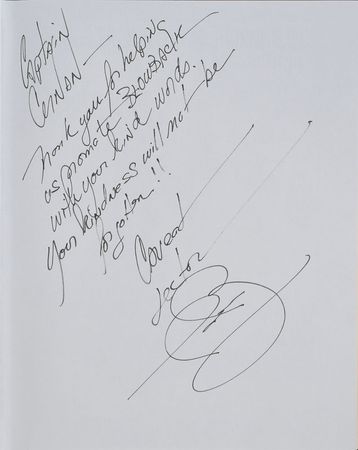 Captain
Cernan —
Thank you for helping
us promote BLOWBACK
with your kind words.
Your kindness will not be
forgotten!!